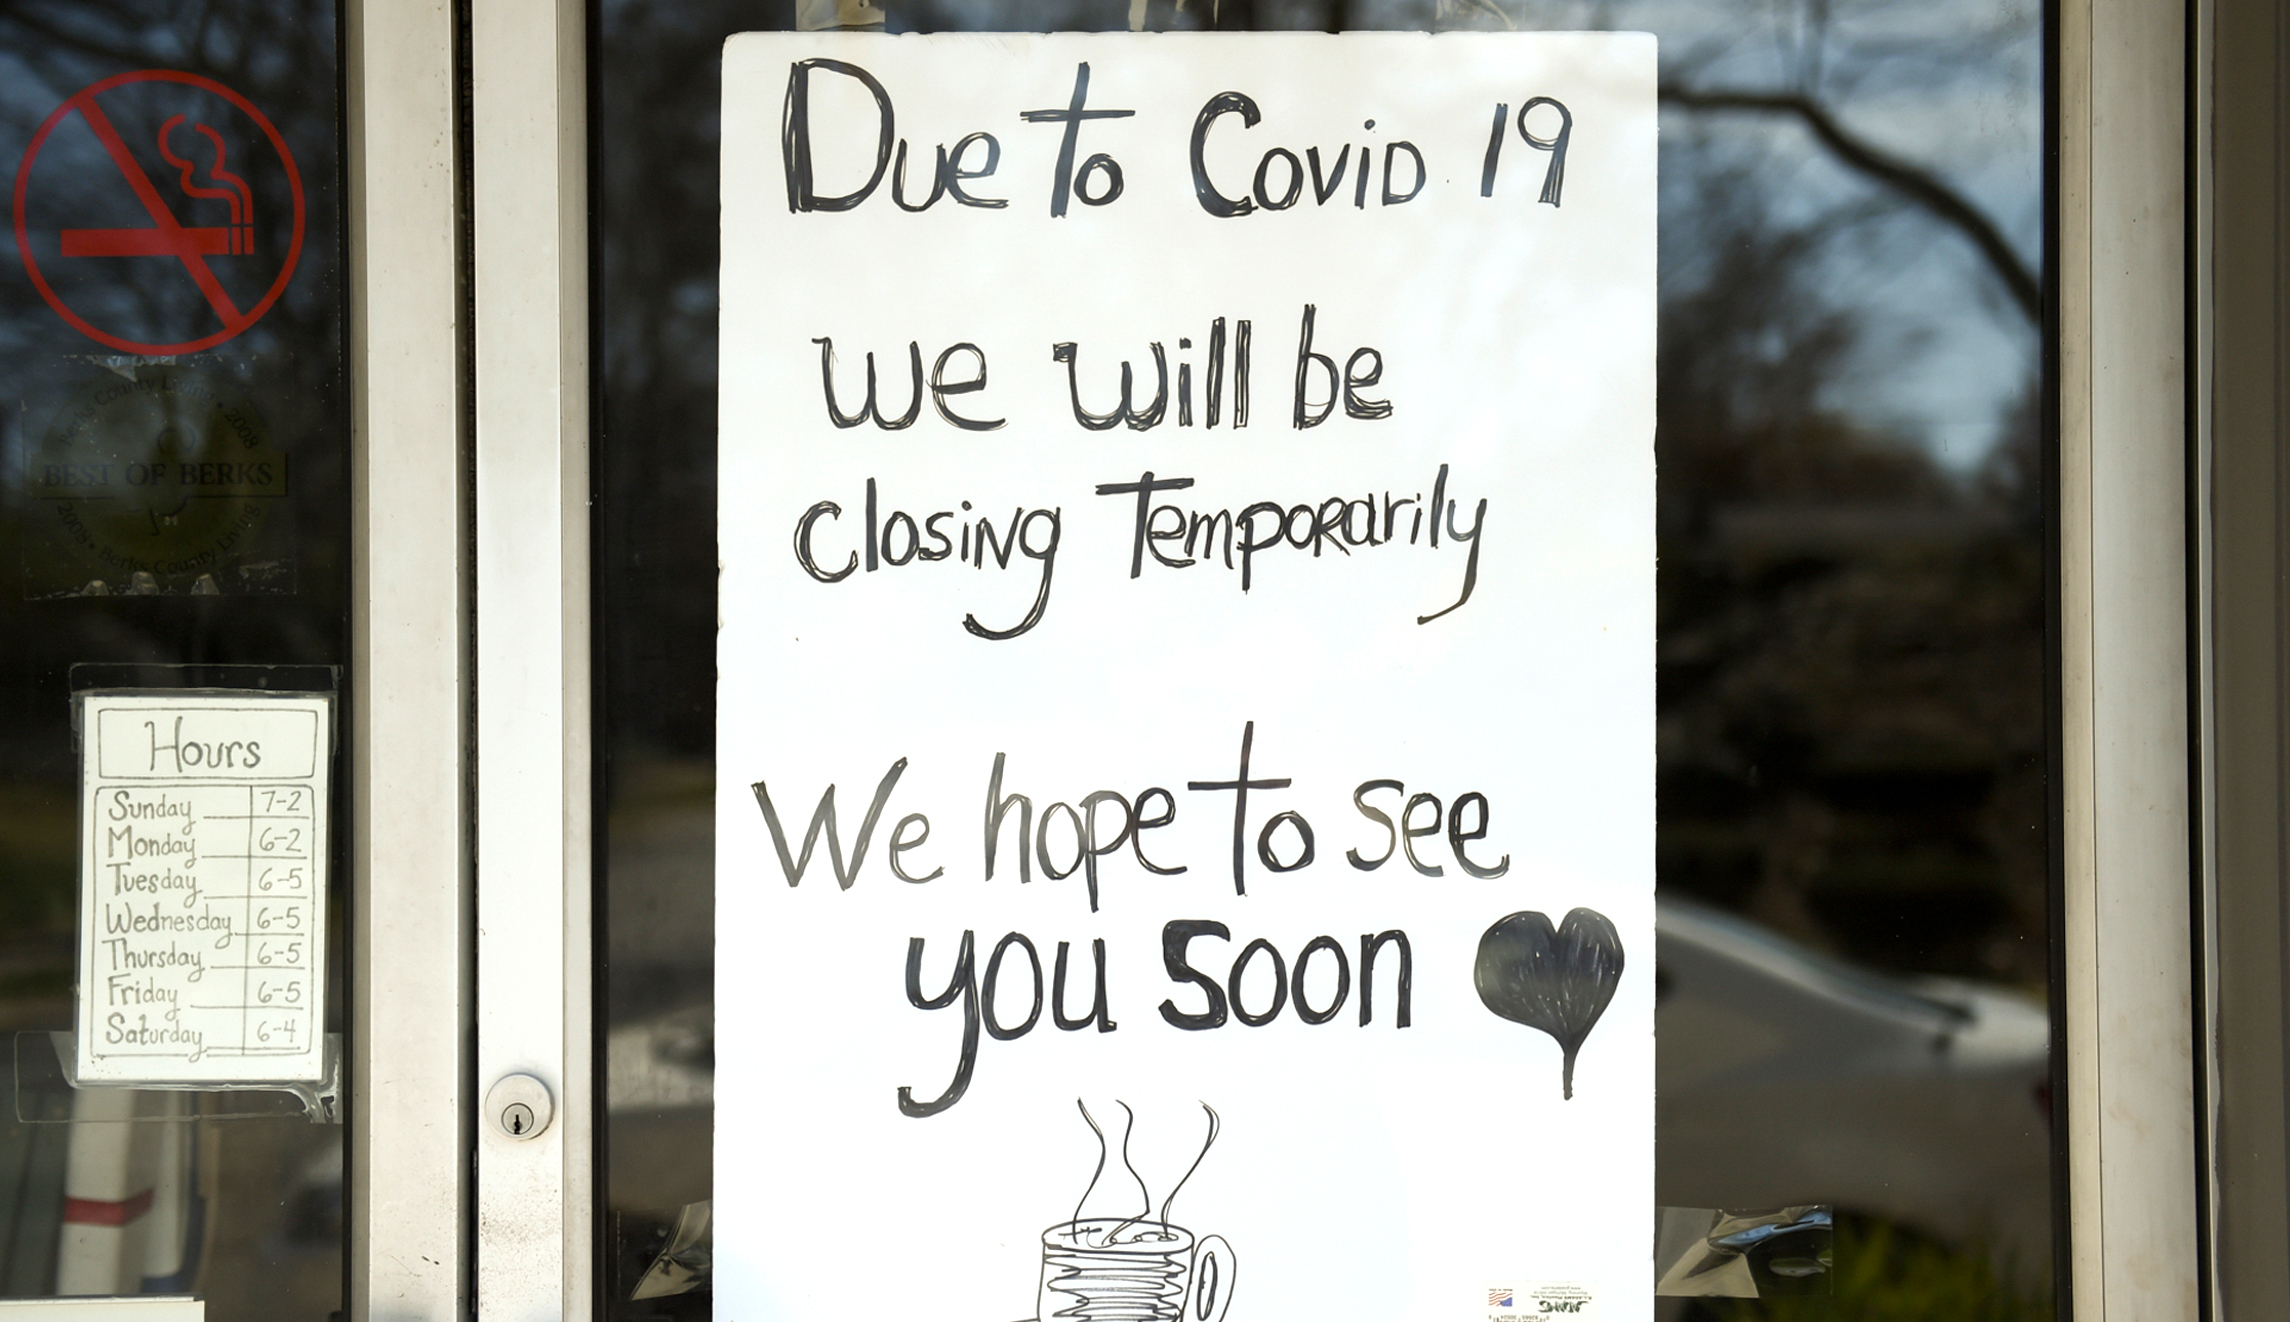 Due to Covid 19
We will be
closing Temporarily
We hope to see
you soon
Berks County Living • 2008
BEST OF BERKS
2008 • Berks County Living
Hours
Sunday 7-2
Monday 6-2
Tuesday 6-5
Wednesday 6-5
Thursday 6-5
Friday 6-5
Saturday 6-4